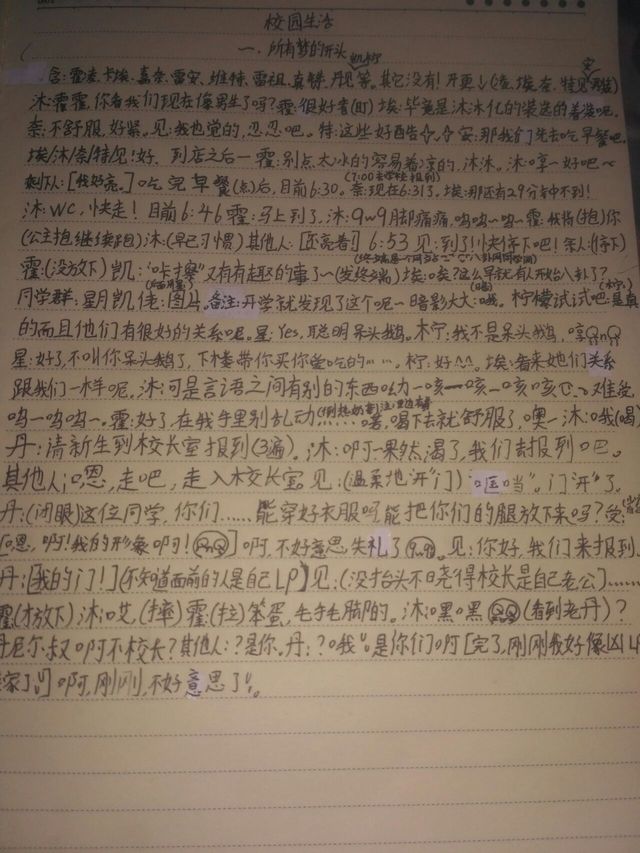 校园生活
一、所有梦的开头
沐:霍霍,你看我们现在像男生了吗?霍:很好看(盯)埃:毕竟是沐沐化的装选的着装吧。
奈:不舒服,好紧。见:我也觉的,忍忍吧。特:这些好酷合合。安:那我们先去吃早餐吧。
埃/沐/奈/特/见:好、到店之后一霍:别点太冰的容易着凉的,沐沐。沐:哼一好吧~
(7:00去学校报到)
剩下人:[我好亮。]吃完早餐(点)后,目前6:30。奈:现在6:31了。埃:那还有29分钟不到!
沐:wc,快走!目前6:46霍:马上到了,沐:9w9月却痛痛,呜呜~呜~霍:我将(抱)你
(公主抱继续跑)沐:(早已习惯)其他人:[还亮着]6:53见:到了!快停下吧!余人:(停下)
霍:(没放下)凯:"咔擦"又有有趣的事了~(发终端)埃:唉?这么早就有人开始八卦了?
同学群:星月凯佬:图片。备注:开学就发现了这个呢一暗影大大:哦。柠檬试试吧:是真
的而且他们有很好的关系呢。星:Yes,聪明呆头鹅。柠:我不是呆头鹅,哼
星:好了,不叫你呆头鹅了,下楼带你买你爱吃的……。柠:好^^。埃:看来她们关系
跟我们一样呢,沐:可是言语之间有别的东西呦一咳一咳一咳咳 难受
呜一呜呜一。霍:好了,在我手里别乱动……(倒热奶)注:里边有着,喝下去就舒服了,噢一沐:哦(喝)
丹:清新生到校长室报到(3遍)。沐:啊一果然,渴了,我们去报到吧。
其他人:嗯,走吧,走入校长室。见:(温柔地"开"门)"哐当"。门"开"了。
丹:(闭眼)这位同学,你们……能穿好衣服吗能把你们的腿放下来吗?受:
[嗯,啊!我的形象啊!]啊,不好意思,失礼了。见:你好,我们来报到。
丹:[我的门!](不知道面前的人是自己LP)见:(没抬头不晓得校长是自己老公)……
霍(才放下)沐:哎,(摔)霍:(拉)笨蛋,毛手毛脚的。沐:嘿嘿(看到老丹)?
丹尼尔叔啊不校长?其他人:?是你。丹:?哦是你们啊[完了,刚刚我好像凶LP
了]啊,刚刚,不好意思了。